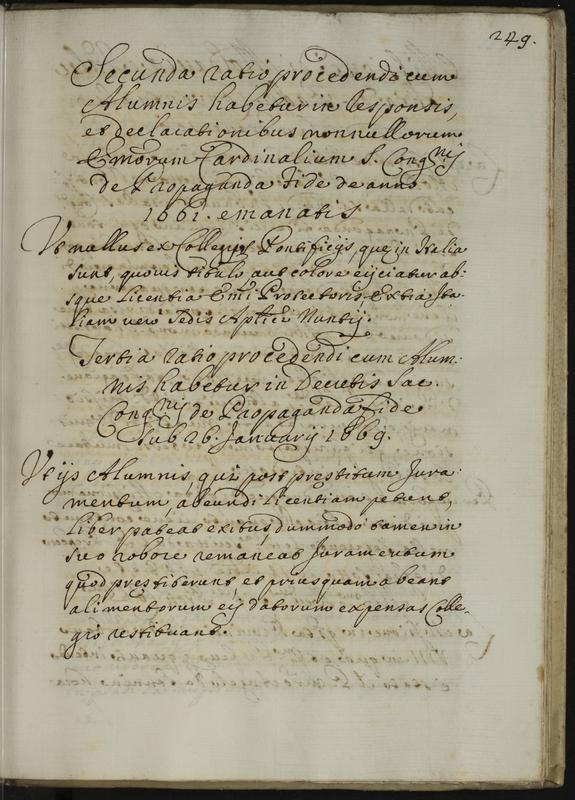 249.
Secunda ratio procedendi cum
Alumnis habetur in responsis,
et declarationibus nonnullorum
Emorum Cardinalium S. Congnis
de Propaganda Fide de anno
1661. emanatis
Ut nullus ex Collegijs Pontificijs, que in Italia
sunt, quovis titulo aut colore eijciatur ab:
sque licentia Emi Protectoris, Extra Ita:
liam vero Sedis Aplicæ Nuntij.
Tertia ratio procedendi cum Alum:
nis habetur in Decretis Sac.
Congnis de Propaganda Fide
sub 26. Januarij 1669.
Ut ijs Alumnis, qui post prestitum Jura:
mentum, abeundi licentiam petunt,
liber pateat exitus, dummodo tamen in
suo robore remaneat Juramentum
quod prestiterunt et priusquam abeant
alimentorum eij datorum expensas Colle-
gio restituant.